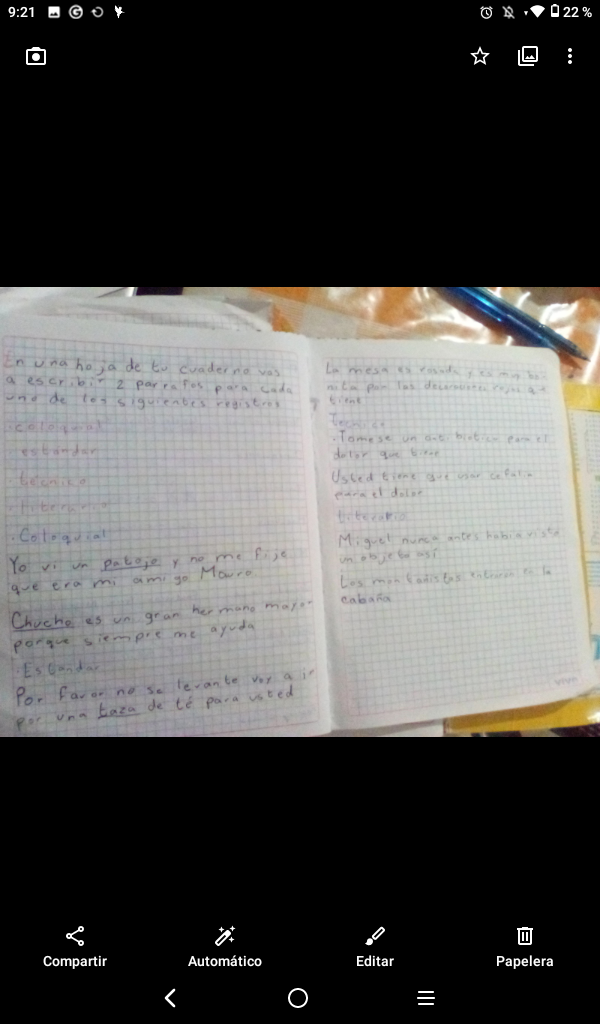 9:21
22 %
En una hoja de tu cuaderno vas
a escribir 2 parrafos para cada
uno de los siguientes registros
·coloquial
·estandar
·tecnico
·literario
·Coloquial
Yo vi un patojo y no me fije
que era mi amigo Mauro
Chucho es un gran hermano mayor
porque siempre me ayuda
·Estandar
Por favor no se levante voy a ir
por una taza de té para usted
La mesa es rosada y es muy bo-
nita por las decoraciones rojas q
tiene
Tecnico
·Tomese un antibiotico para el
dolor que tiene
Usted tiene que usar
para el dolor
Literario
Miguel nunca antes habia visto
un objeto así
Los montañistas entraron en la
cabaña
Compartir
Automático
Editar
Papelera